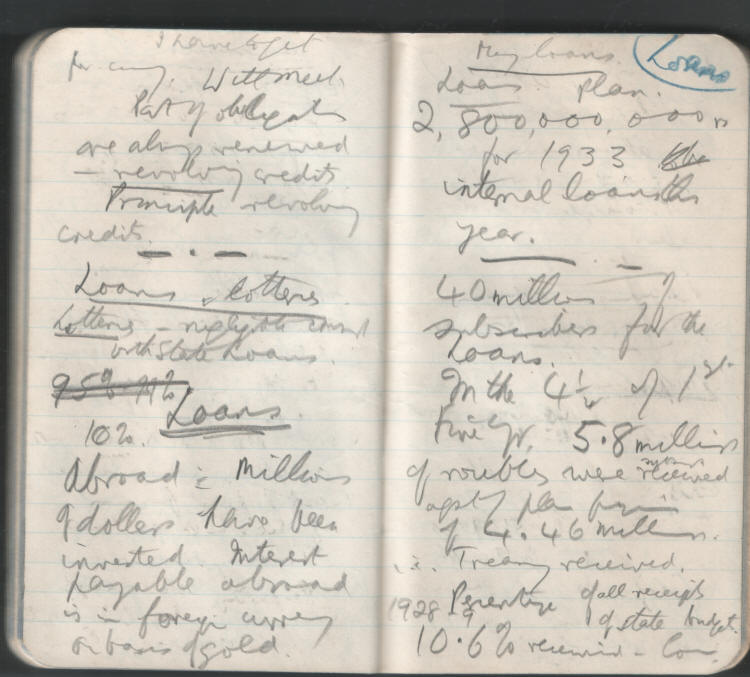 I have to get
for
Part of obligations
are always renewed
– revolving credits.
Principle revolving
credits.
Loans, lotteries
Lotteries – negligible
with State Loans.
Loans
10%.
Abroad : Millions
of dollars have been
invested. Interest
payable abroad
is in foreign currency
on basis of gold.
Loans
My loans.
Loans plan.
2,800,000,000 rs
for 1933
internal loans this
year.
40 million
subscribers for the
Loans.
In the 4½ of 1st
Five Yr, 5.8 millions
of roubles were received
agst plan
of 4.46 millions.
i.e. Treasury received.
Percentage of all receipts
1928-9 of state budget.
10.6% received – Loans